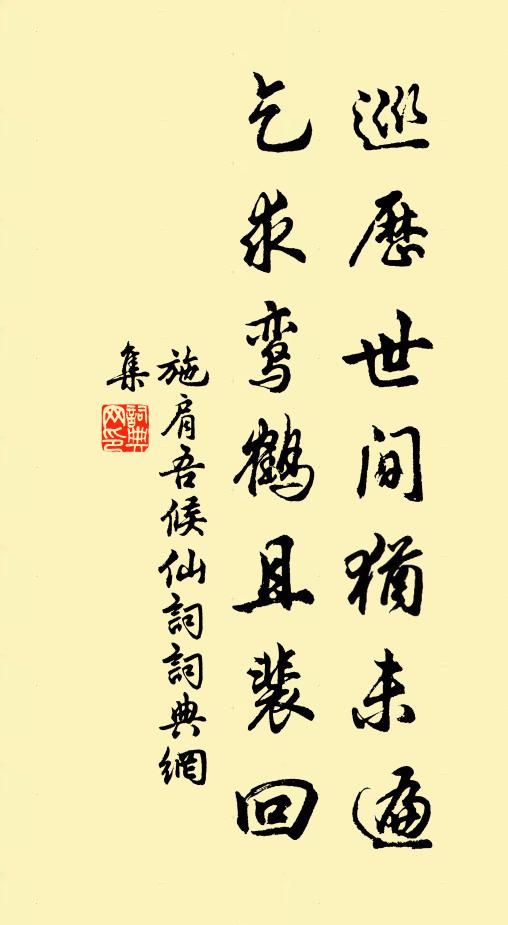 巡歷世间猶未遍
乞求鸾鶴且裴回
施肩吾候仙詞詞典網
集
詞典網印